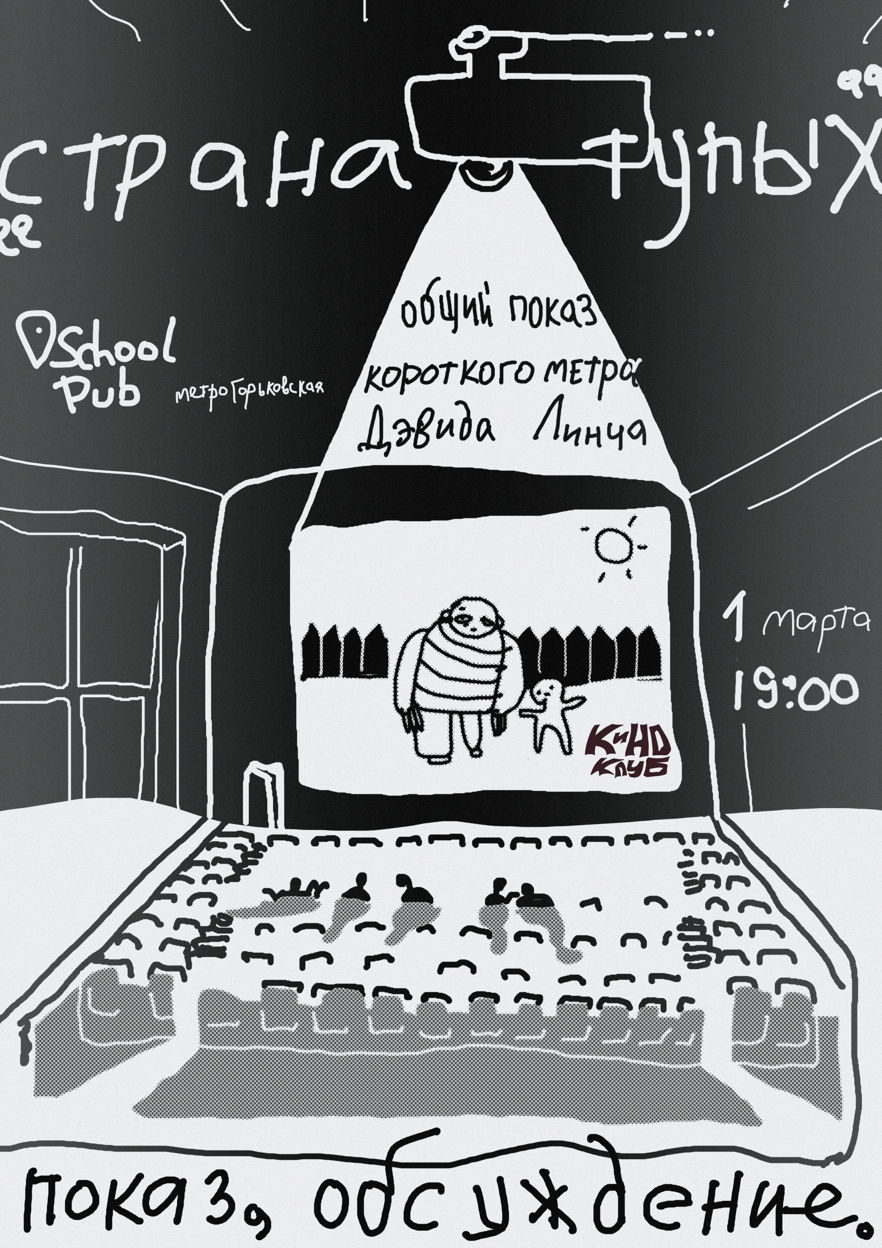 „страна тупых“
общий показ
короткого метра
Дэвида Линча
School
Pub
метро Горьковская
1 марта
19:00
КиНО
Клуб
показ, обсуждение.